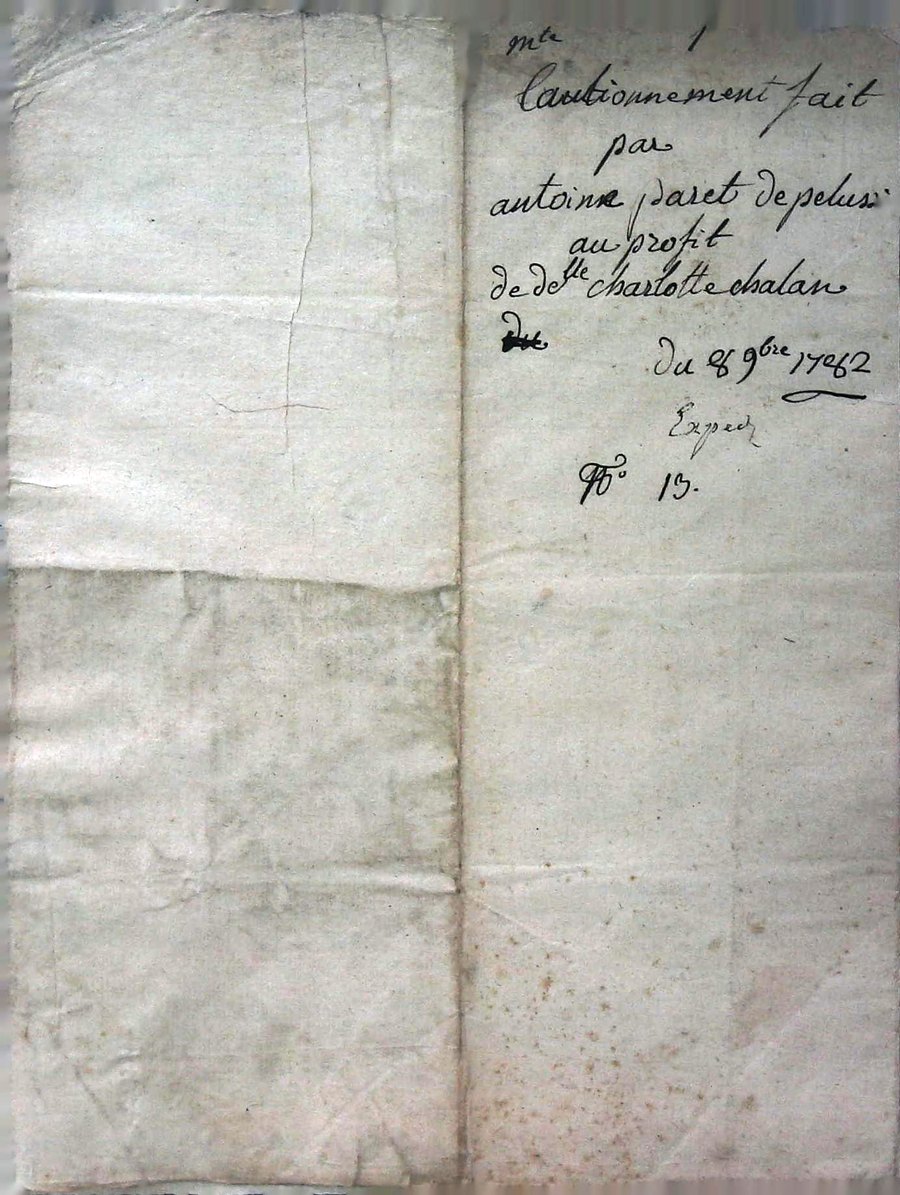 mte 1
Cautionnement fait
par
antoine paret de pelussi
au profit
de delle charlotte chalan
du 8 9bre 1782
Exped
No 13.